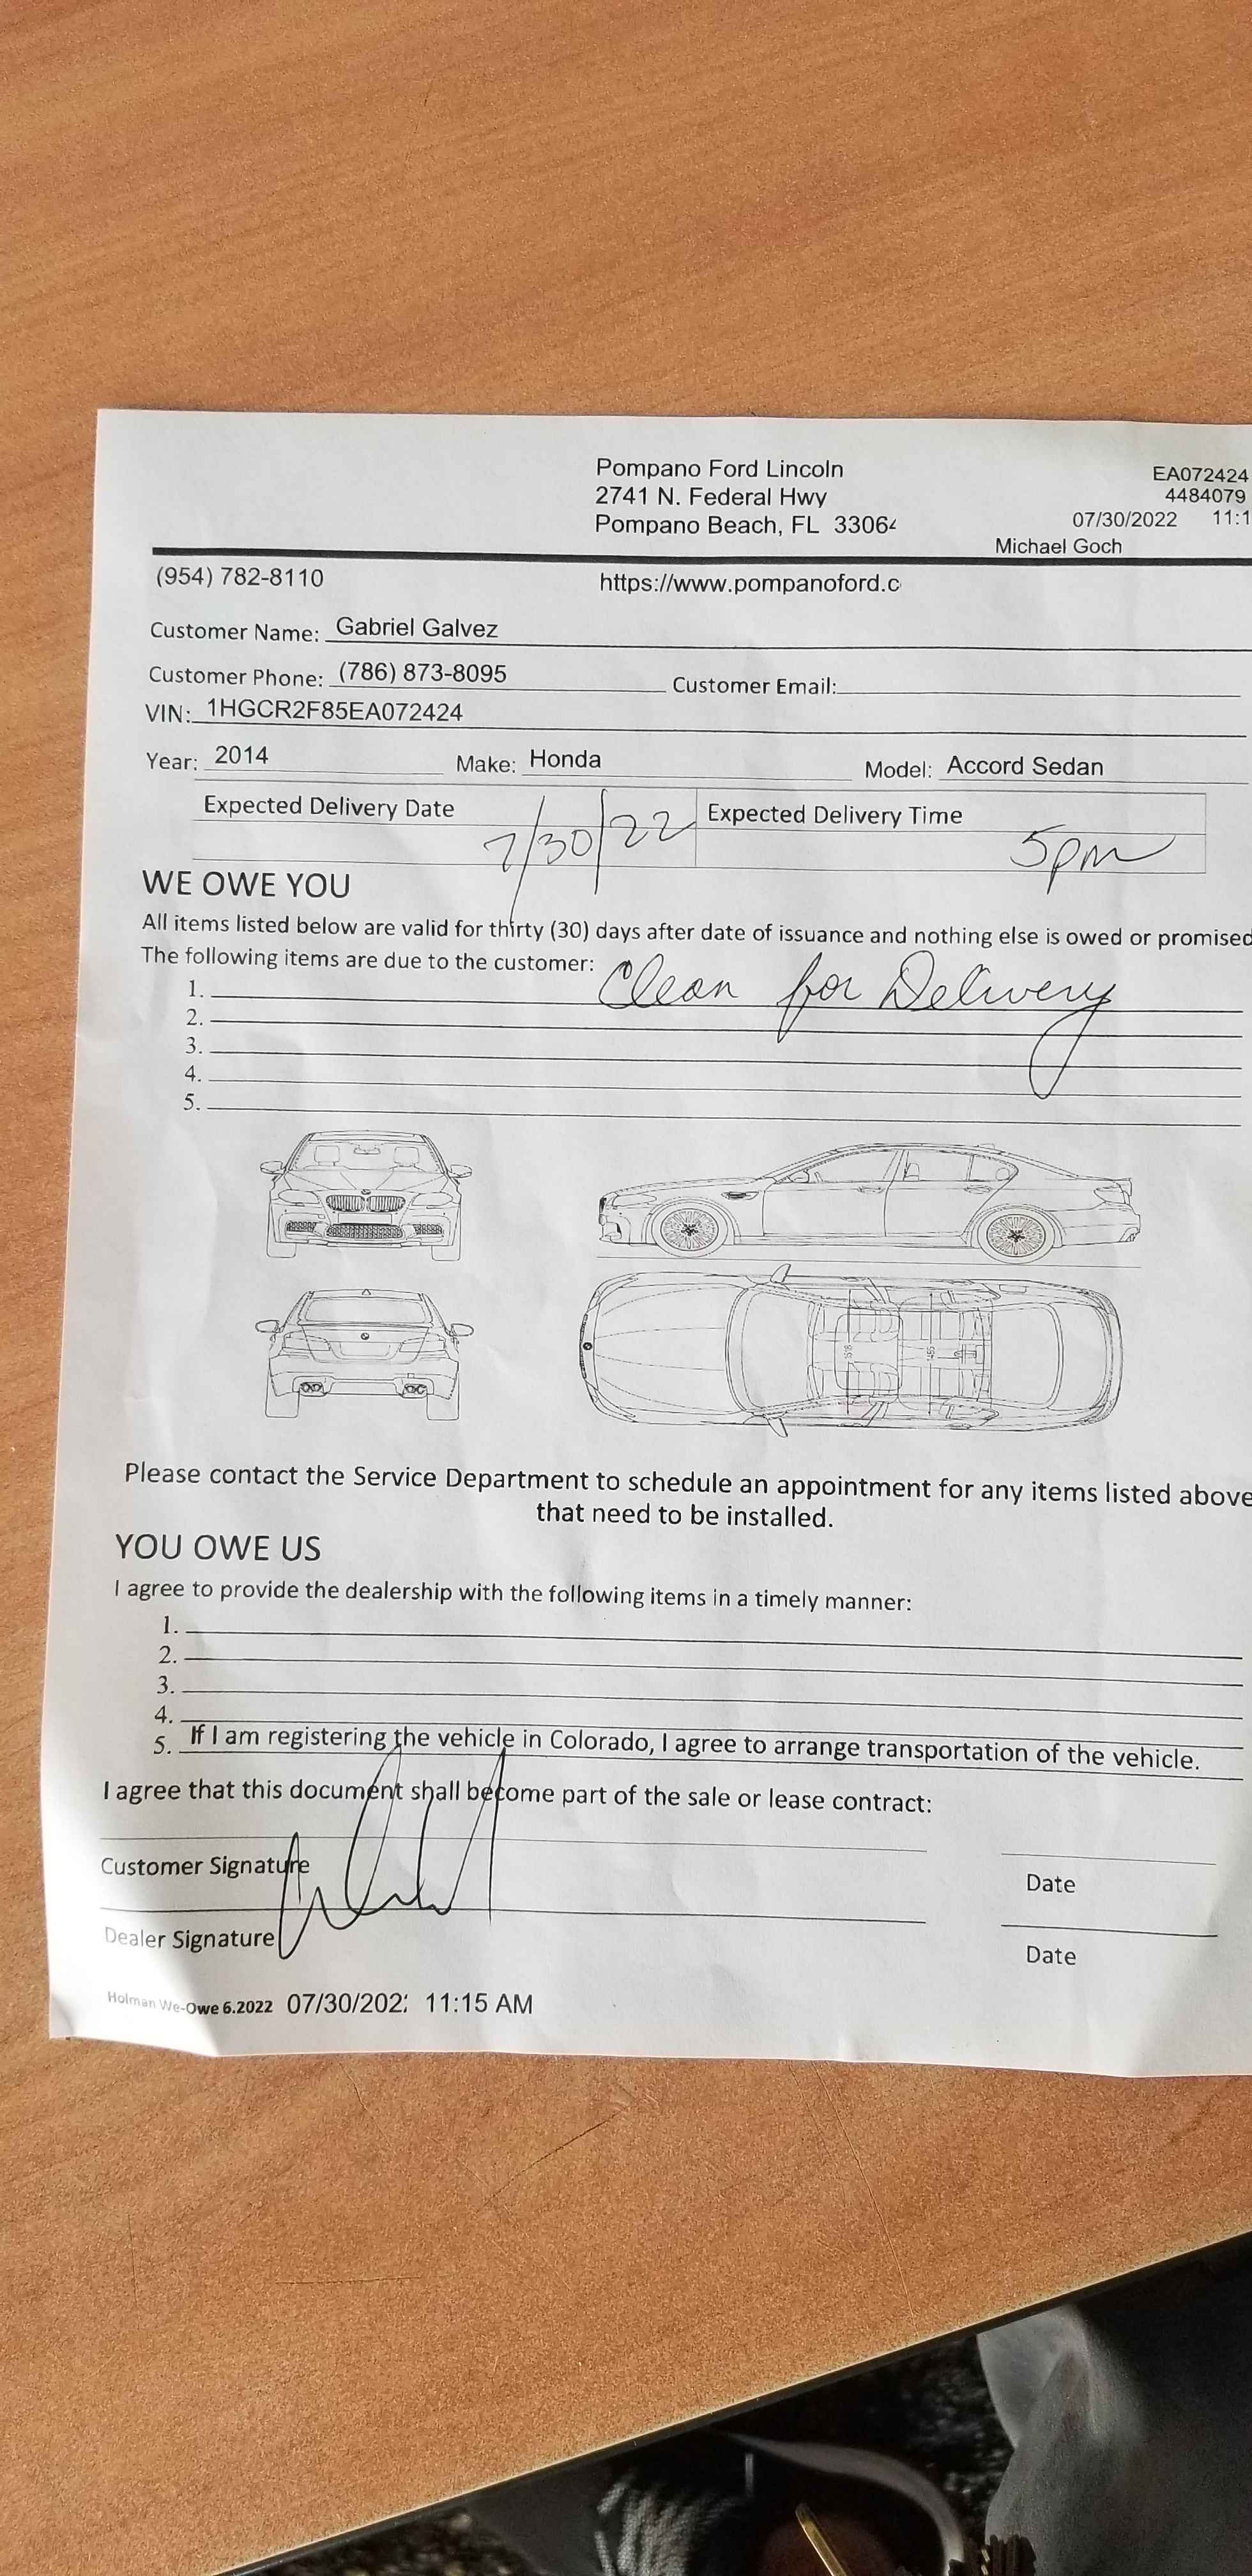 Pompano Ford Lincoln
EA072424
2741 N. Federal Hwy
4484079
Pompano Beach, FL 33064
07/30/2022 11:1
Michael Goch
(954) 782-8110 https://www.pompanoford.c
Customer Name: Gabriel Galvez
Customer Phone: (786) 873-8095 Customer Email:
VIN: 1HGCR2F85EA072424
Year: 2014 Make: Honda Model: Accord Sedan
Expected Delivery Date 7/30/22 Expected Delivery Time 5pm
WE OWE YOU
All items listed below are valid for thirty (30) days after date of issuance and nothing else is owed or promised
The following items are due to the customer:
1. Clean for Delivery
2.
3.
4.
5.
Please contact the Service Department to schedule an appointment for any items listed above
that need to be installed.
YOU OWE US
I agree to provide the dealership with the following items in a timely manner:
1.
2.
3.
4.
5. If I am registering the vehicle in Colorado, I agree to arrange transportation of the vehicle.
I agree that this document shall become part of the sale or lease contract:
Customer Signature Date
Dealer Signature Date
Holman We-Owe 6.2022 07/30/202 11:15 AM